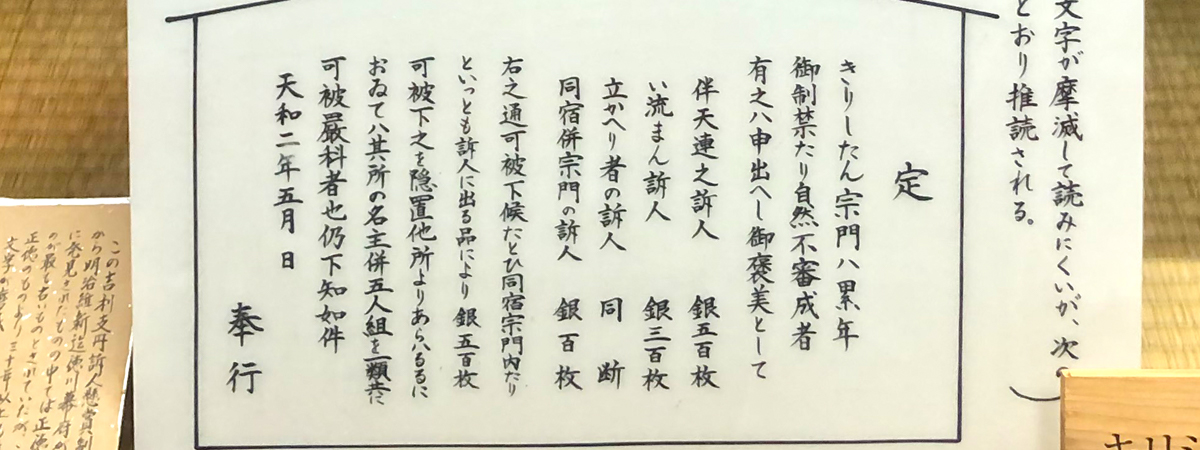 文字が摩滅して読みにくいが、次の
とおり推読される。
定
きりしたん宗門ハ累年
御制禁たり自然不審成者
有之ハ申出へし御褒美として
伴天連之訴人 銀五百枚
い流まん訴人 銀三百枚
立かへり者の訴人 同断
同宿併宗門の訴人 銀百枚
右之通可被下候たとひ同宿宗門内たり
といっとも訴人に出る品により 銀五百枚
可被下之を隠置他所よりあらハるるに
おゐてハ其所の名主併五人組を一類共に
可被嚴科者也仍下知如件
天和二年五月 日
奉行
この吉利支丹訴人懸賞制
から明治維新迄徳川幕府が
に発見されたものの中では正徳
のが最も古いものとされていたが、
正徳のものより三十年以上も
キリシ